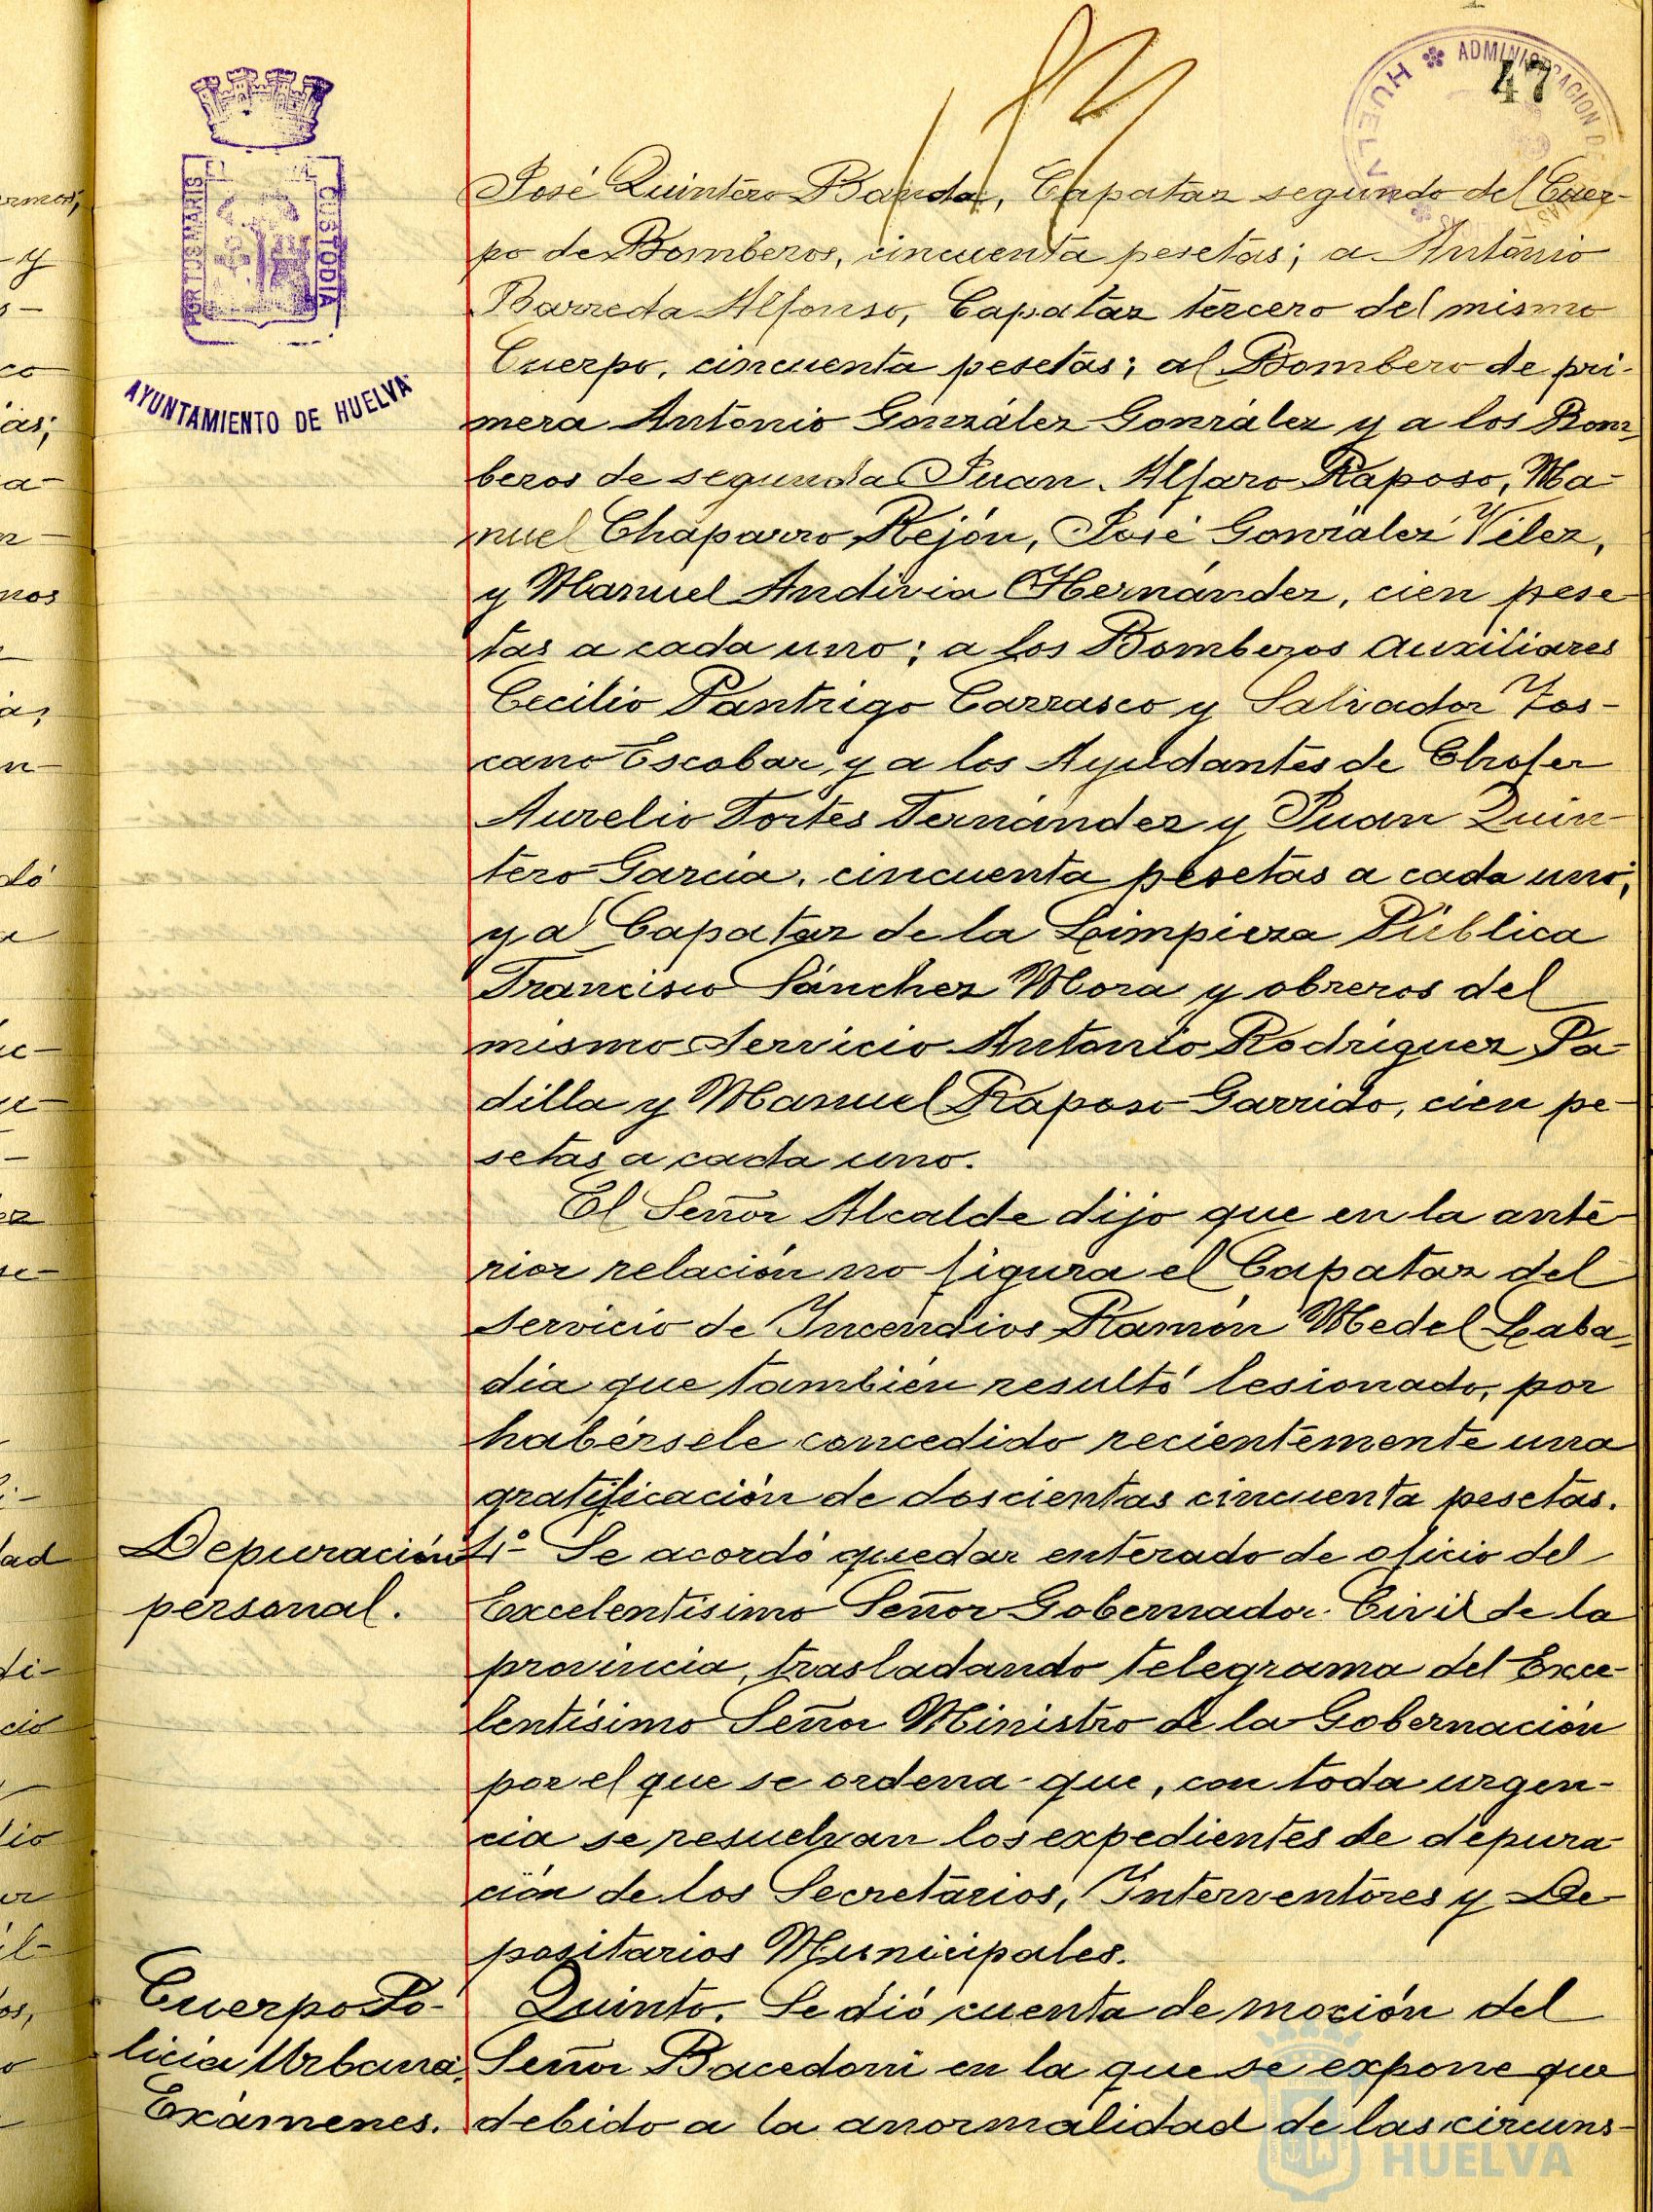 47
ADMINISTRACION DE
HUELVA
PORTUS MARIS
CUSTODIA
AYUNTAMIENTO DE HUELVA
José Quintero Banda, Capataz segundo del Cuer-
po de Bomberos, cincuenta pesetas; a Antonio
Barreda Alfonso, Capataz tercero del mismo
Cuerpo, cincuenta pesetas; al Bombero de pri-
mera Antonio González González y a los Bom-
beros de segunda Juan Alfaro Raposo, Ma-
nuel Chaparro Rejón, José González Vélez,
y Manuel Andivia Hernández, cien pese-
tas a cada uno; a los Bomberos auxiliares
Cecilio Pantrigo Carrasco y Salvador Tos-
cano Escobar y a los Ayudantes de Chofer
Aurelio Fortes Fernández y Juan Quin-
tero García, cincuenta pesetas a cada uno;
y al Capataz de la Limpieza Pública
Francisco Sánchez Mora y obreros del
mismo Servicio Antonio Rodríguez Pa-
dilla y Manuel Raposo Garrido, cien pe-
setas a cada uno.
El Señor Alcalde dijo que en la ante-
rior relación no figura el Capataz del
Servicio de Incendios Ramón Medel Laba-
dia que también resultó lesionado, por
habérsele concedido recientemente una
gratificación de doscientas cincuenta pesetas.
Depuración
personal.
4º Se acordó quedar enterado de oficio del
Excelentísimo Señor Gobernador Civil de la
provincia, trasladando telegrama del Exce-
lentísimo Señor Ministro de la Gobernación
por el que se ordena que, con toda urgen-
cia se resuelvan los expedientes de depura-
ción de los Secretarios, Interventores y De-
positarios Municipales.
Cuerpo Po-
licia Urbana.
Exámenes.
Quinto. Se dió cuenta de moción del
Señor Bacedoni en la que se expone que
debido a la anormalidad de las circuns-
HUELVA